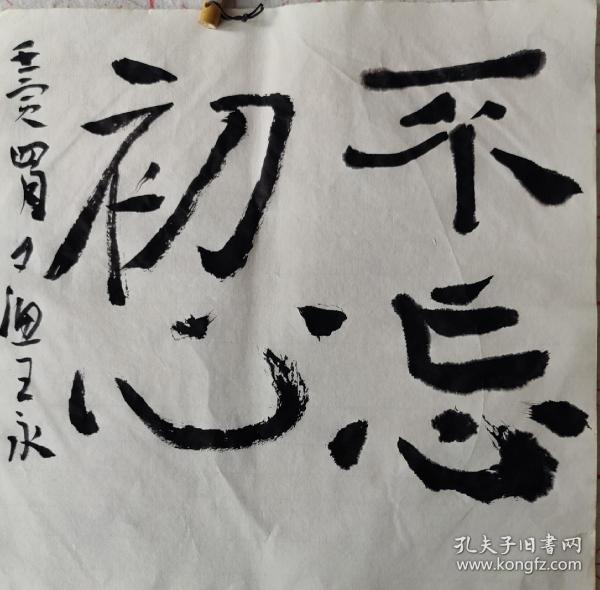 不忘
初心
壬寅四月
王永
孔夫子旧書网
www.kongfz.com